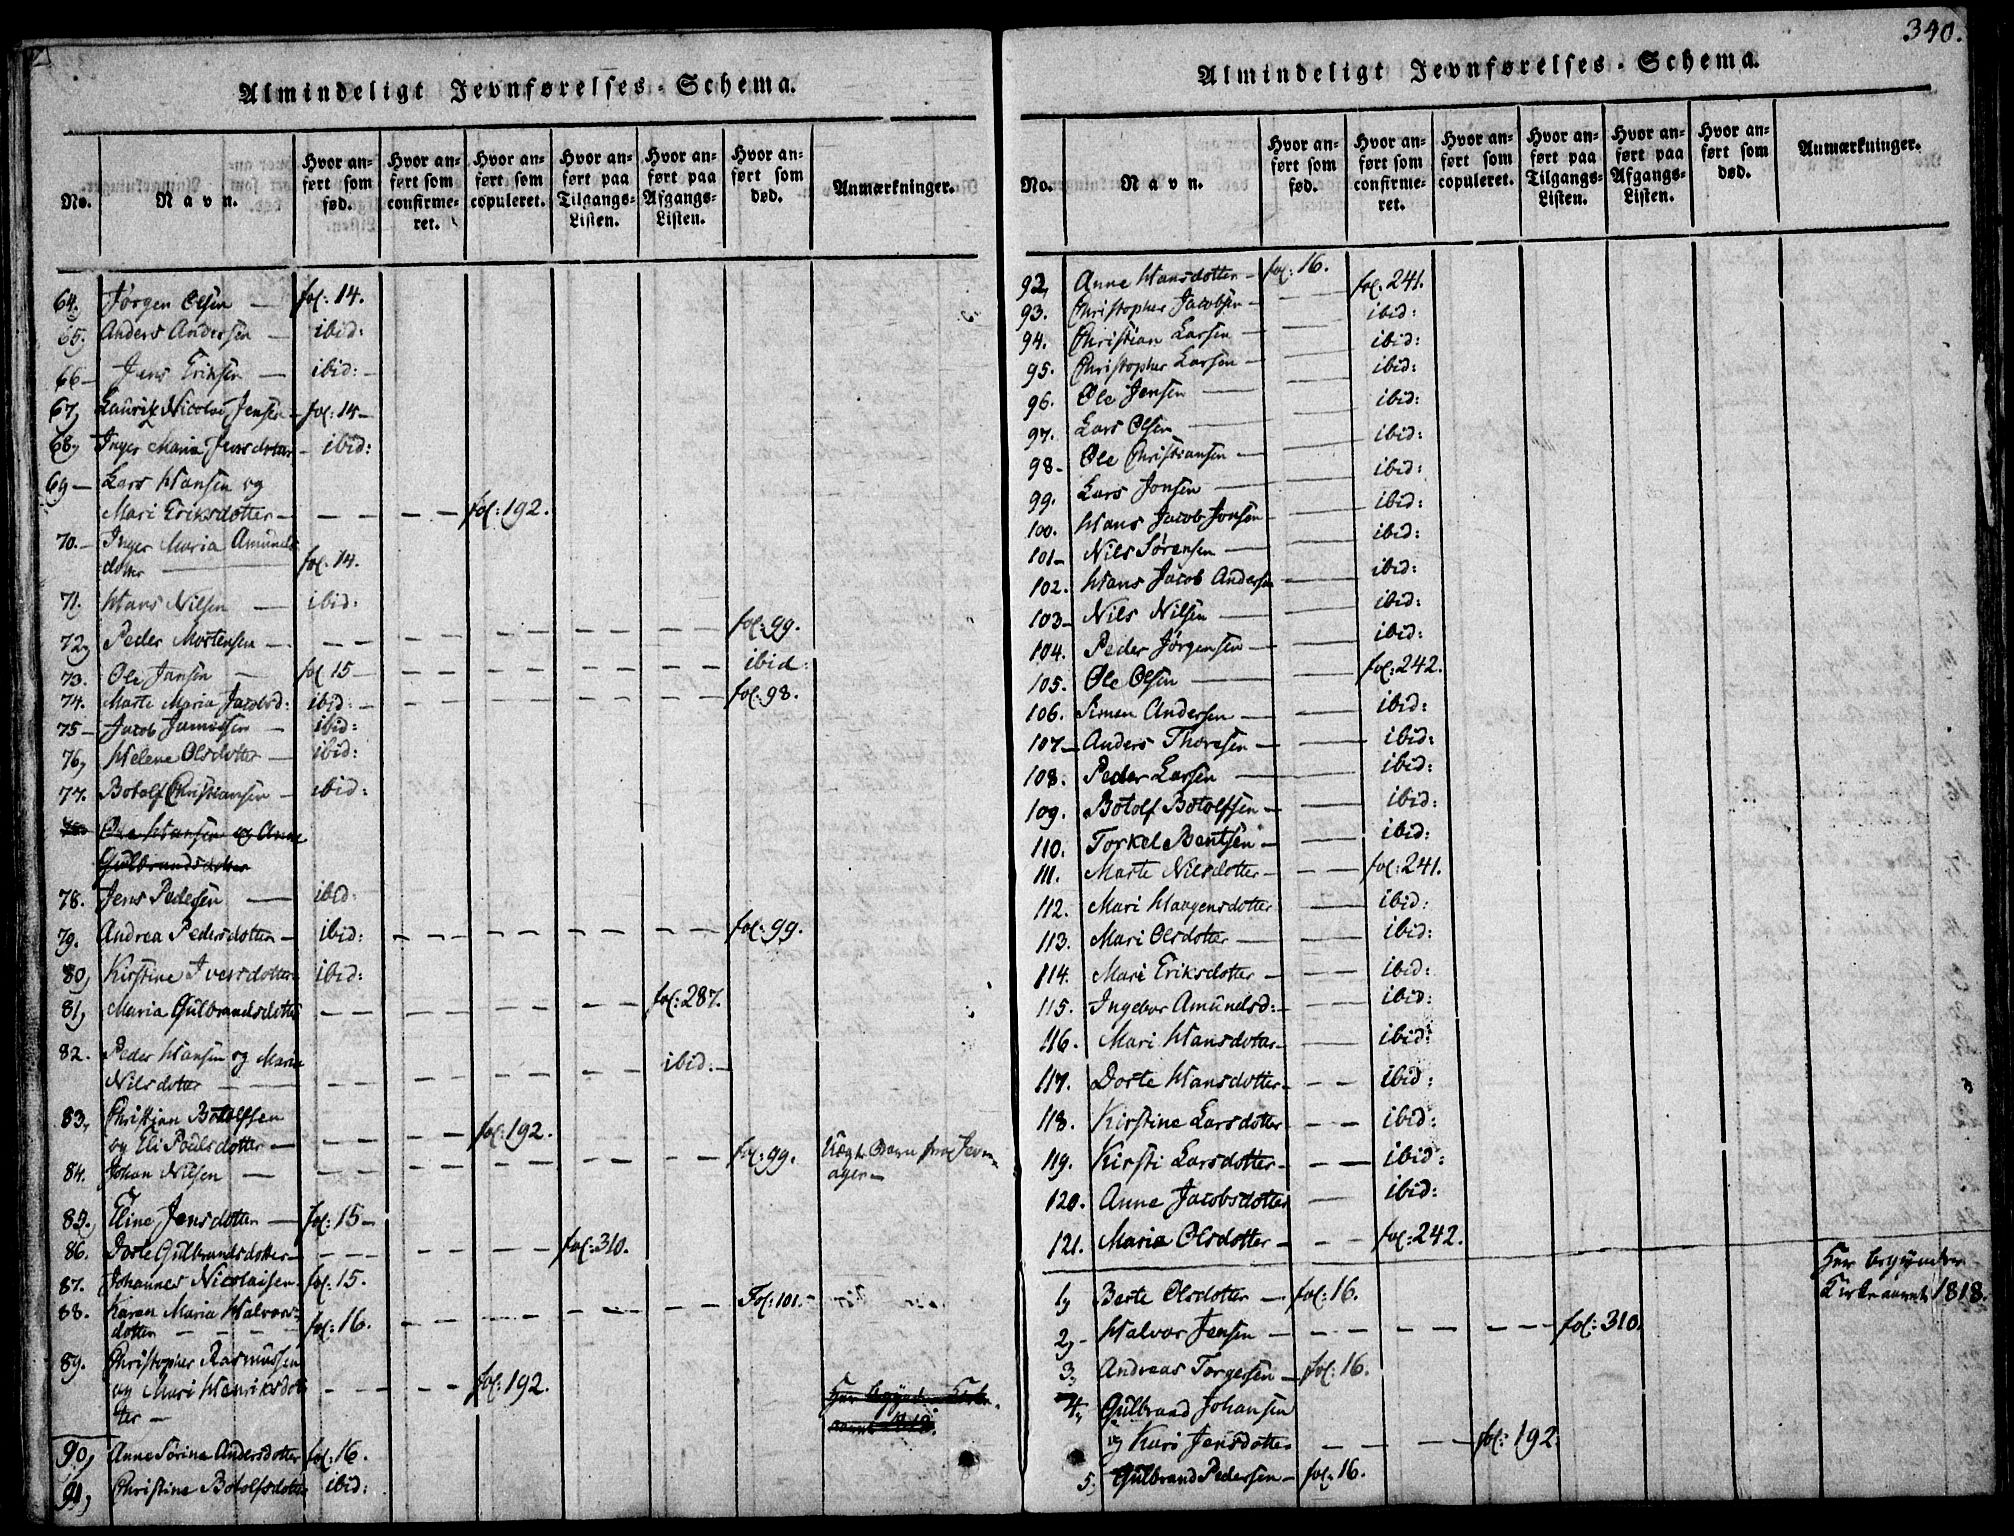 340.
Almindeligt Jevnførelses-Schema.
No. Navn. Hvor anført som fød. Hvor anført som confirmeret. Hvor anført som copuleret. Hvor anført paa Tilgangs-Listen. Hvor anført paa Afgangs-Listen. Hvor anført som død. Anmærkninger.
64, Jørgen Olsen — fol: 14.
65, Anders Andersen — ibid:
66 — Jens Eriksen — ibid: -
67, Laurik Nicolai Jensen - fol: 14 -
68, Inger Maria Jensdotter - ibid:
69 — Lars Hansen og
Mari Eriksdotter - — — — — fol: 192.
70. - Inger Maria Amunds
dotter — fol. 14.
71. Hans Nilsen — ibid:
72, Peder Mortensen — — — — — — — — — fol: 99.
73. Ole Jansen — fol 15 — — — — — — — — ibid:
74. Marte Maria Jacobsd: ibid: - — — — — — — — fol: 98.
75 — Jacob — ibid:
76, Helene Olsdotter — ibid:
77. Botolf Christiansen — ibid:
Ole Hansen og Anne
Gulbrandsdotter
78. Jens Pedersen — ibid:
79. Andrea Pedersdotter — ibid: — — — — — — — — fol: 99.
80, Kirstine Iversdotter ibid:
81, Maria Gulbrandsdotter — — — — — — — fol: 287.
82. Peder Hansen og Maria
Nilsdotter — — — — — — — — — ibid. —
83, Christian Botolfsen
og Eli Pedersdotter — — — — — fol: 192.
84. Johan Nilsen — — — — — — — — — — fol: 99.
ager —
85, Eline Jensdotter — fol: 15 —
86. Dorte Gulbrandsdotter — — — — — — fol: 310.
87. Johannes Nicolaisen. fol: 15.
88. Karen Maria Halvors-
dotter — — — fol: 16. — — — — — — — Fol: 101. -
89. Christopher Rasmussen
og Mari Henriksdot
ter — — — — — fol: 192.
Her begynder Kirke-
aaret 1818.
90, Anne Sørine Andersdotter fol: 16.
91, Christine Botolfsdotter ibid:
Almindeligt Jevnførelses-Schema.
No. Navn. Hvor anført som fød. Hvor anført som confirmeret. Hvor anført som copuleret. Hvor anført paa Tilgangs-Listen. Hvor anført paa Afgangs-Listen. Hvor anført som død. Anmærkninger.
92, Anne Hansdotter — fol: 16.
93. Christopher Jacobsen — — fol. 241.
94. Christian Larsen — — ibid:
95. Christopher Larsen — — ibid:
96. Ole Jensen — — ibid:
97. Lars Olsen — — ibid:
98 - Ole Christiansen — — ibid:
99. Lars Jonsen — — ibid:
100. Hans Jacob Jonsen — ibid:
101 - Nils Sørensen — — ibid:
102. Hans Jacob Andersen — ibid:
103 - Nils Nilsen — — ibid:
104. Peder Jørgensen — — ibid:
105. Ole Olsen — — fol: 242.
106. Simen Andersen — — ibid:
107 - Anders Thoresen — — ibid:
108. Peder Larsen — — ibid:
109. Botolf Botolfsen — — ibid:
110. Torkel Bentsen — — ibid:
111. Marte Nilsdotter — — — fol: 241.
112. Mari Haagensdotter — ibid:
113. Mari Olsdotter — — ibid:
114. Mari Eriksdotter — — ibid:
115. Ingebor Amundsd: — — ibid:
116. Mari Hansdotter — — — ibid:
117. Dorte Hansdotter — — — ibid:
118. Kirstine Larsdotter — — ibid:
119. Kirsti Larsdotter — — — ibid:
120. Anne Jacobsdotter — ibid:
121. Maria Olsdotter — — — fol: 242.
Her begynder
Kirkeaaret 1818.
1, Berte Olsdotter — fol: 16.
2, Halvor Jensen — — — — — — — — fol: 310.
3, Andreas Torgersen — fol: 16.
4, Gulbrand Johansen
og Kari Jensdotter — — — — fol: 192.
5, Gulbrand Pedersen — fol: 16.